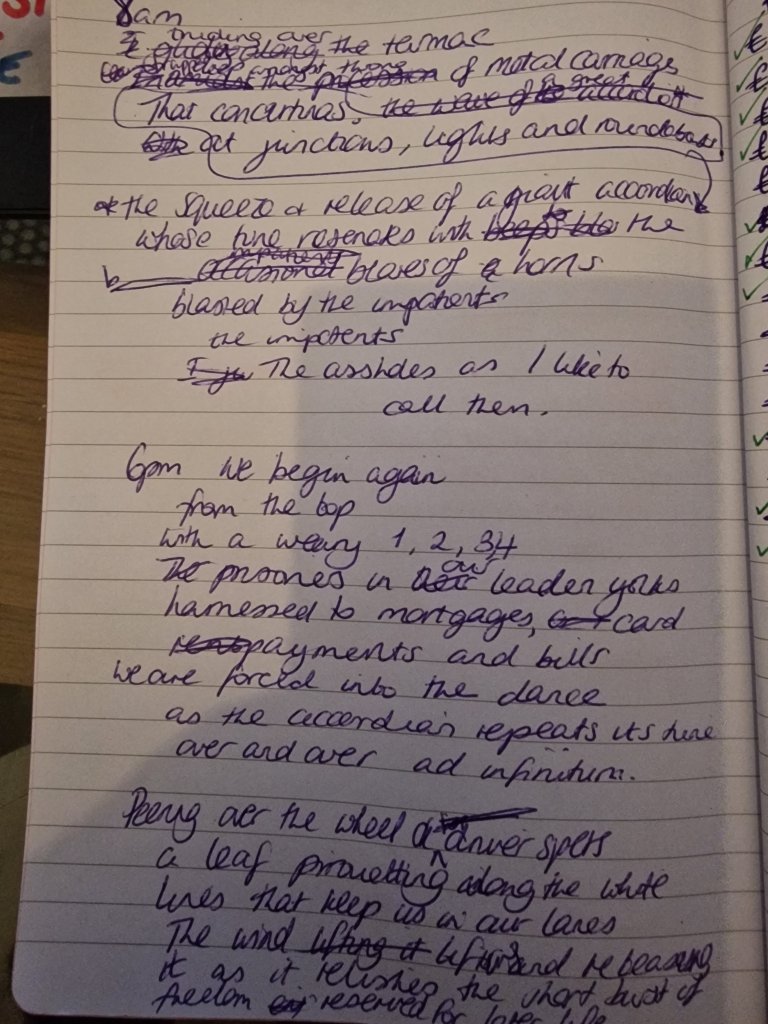 8am
trudging over
I guide along the termac
stampeded amongst throng
the procession of metal carriages
That concertinas, the wave of a great accordion
at junctions, lights and roundabouts
* the squeeze & release of a giant accordian
whose tune resenates with beeps to the
impatient
occasional blares of a horns
blared by the impatients
the impotents
I The assholes as I like to
call them.
6pm we begin again
from the top
with a weary 1, 2, 3 4
The prisoners in our leader yorks
harnessed to mortgages, card
payments and bills
we are forced into the dance
as the accordian repeats its tune
over and over ad infinitum.
Peering over the wheel a driver spots
a leaf pirouetting along the white
lines that keep us in our lanes
The wind lifting it lifting and releasing
it as it relishes the short burst of
freedom reserved for later life